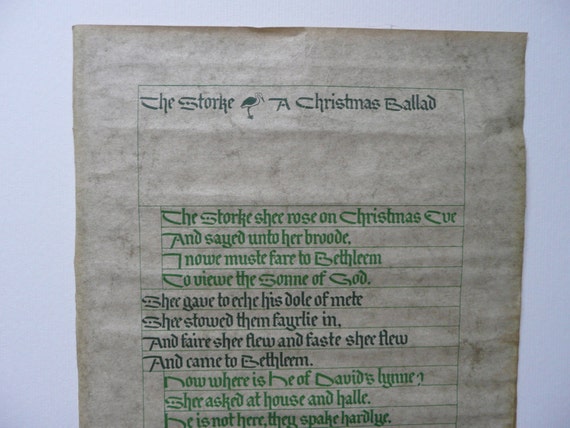 The Storke A Christmas Ballad
The Storke shee rose on Christmas Eve
And sayed unto her broode,
I nowe muste fare to Bethleem
To viewe the Sonne of God.
Shee gave to eche his dole of mete
Shee stowed them fayrlie in,
And faire shee flew and faste shee flew
And came to Bethleem.
Now where is he of David's lynne?
Shee asked at house and halle.
He is not here, they spake hardlye,